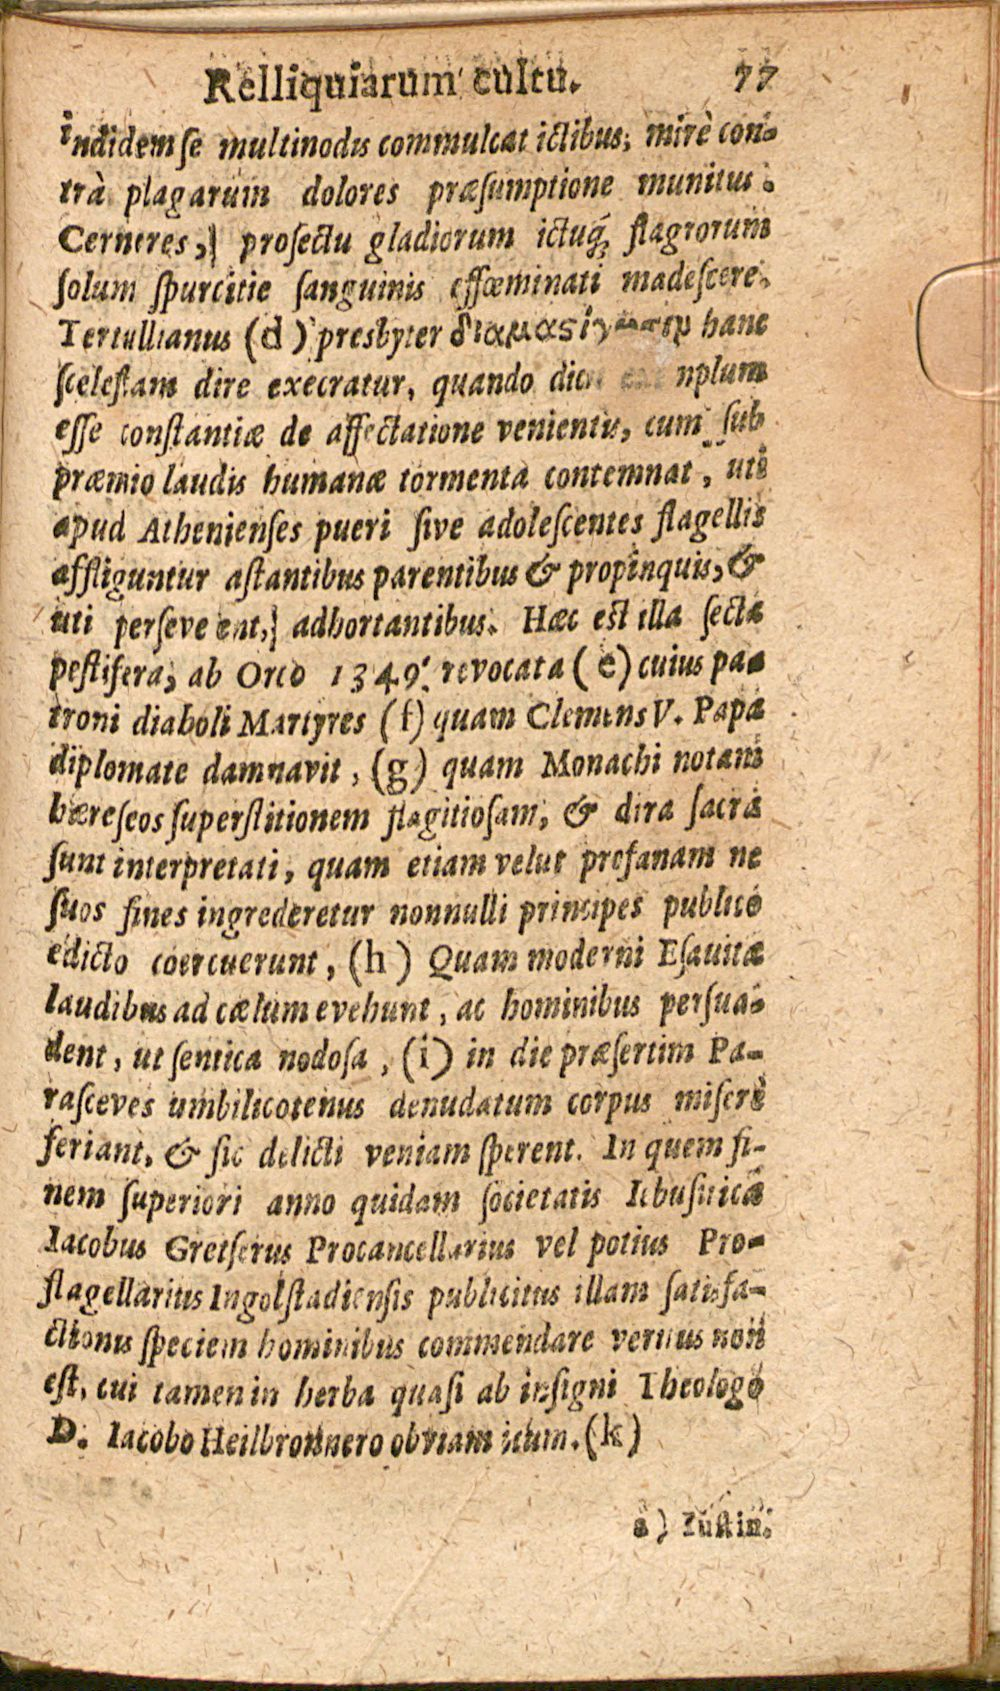 Relliquiarum cultu. 77
indidem se multinodis commulcat ictibus; mirè con-
trà plagarum dolores præsumptione munitus.
Cerneres, prosectu gladiorum ictuq́; flagrorum
solum spurcitie sanguinis effœminati madescere.
Tertullianus (d) presbyter hanc
scelestam dire execratur, quando nplum
esse constantiæ de affectatione venientis, cum sub
præmio laudis humanæ tormenta contemnat, uti
apud Athenienses pueri sive adolescentes flagellis
affliguntur astantibus parentibus & propinquis, &
uti perseve ent, adhortantibus. Hæc est illa secta
pestifera, ab Orco 1349. revocata (e) cuius pa-
troni diaboli Martyres (f) quam Clemens V. Papa
diplomate damnavit, (g) quam Monachi notam
hæreseos superstitionem flagitiosam, & dira sacra
sunt interpretati, quam etiam velut profanam ne
suos fines ingrederetur nonnulli principes publico
edicto coercuerunt, (h) Quam moderni Esauitæ
laudibus ad cælum evehunt, ac hominibus persua-
dent, ut sentica nodosa, (i) in die præsertim Pa-
rasceves umbilicotenus denudatum corpus miserè
feriant, & sic delicti veniam sperent. In quem fi-
nem superiori anno quidam societatis Iebusiticæ
Iacobus Gretserus Procancellarius vel potius Pro-
flagellarius Ingolstadiensis publicitus illam satisfa-
ctionis speciem hominibus commendare veritus non
est, cui tamen in herba quasi ab insigni Theologo
D. Iacobo Heilbronnero obviam itum. (k)
a) Iustin.